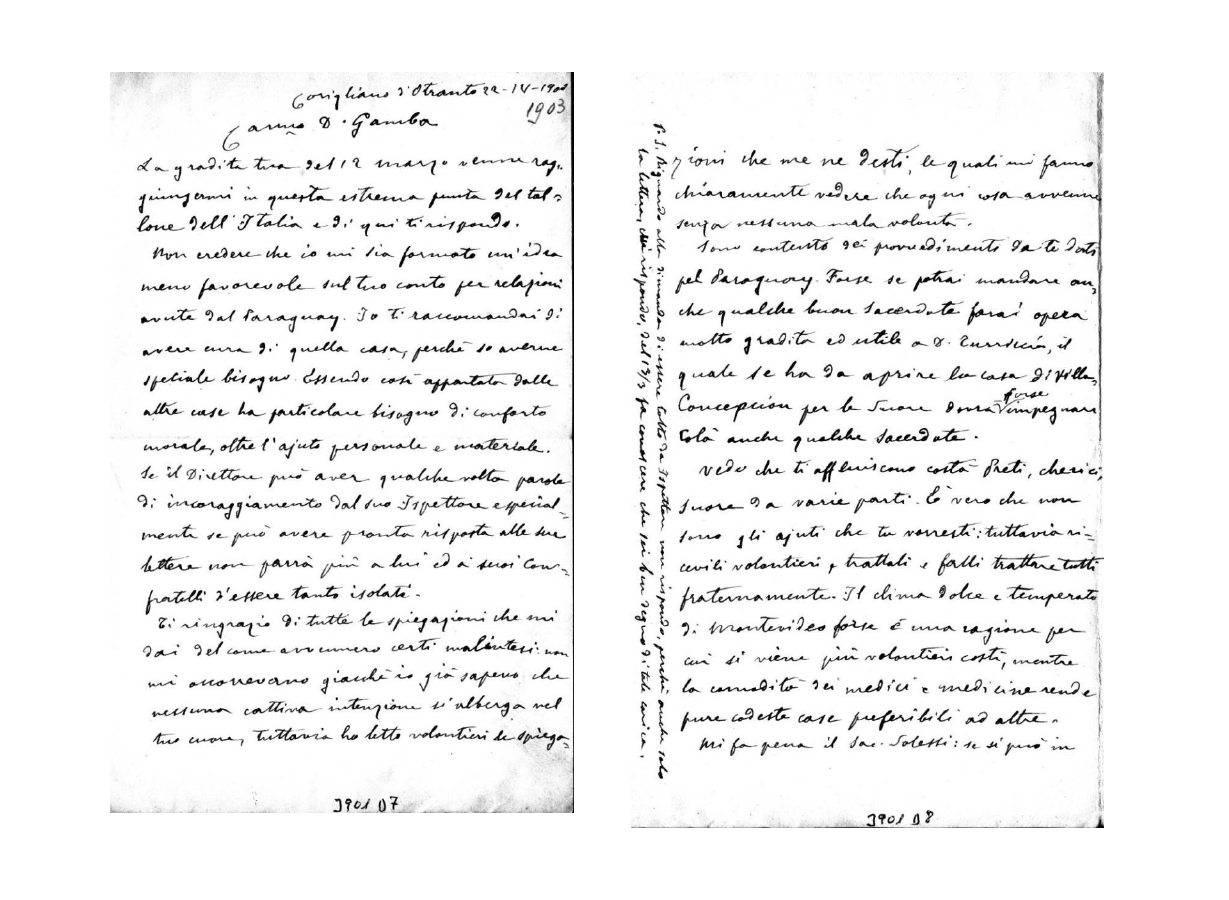 Corigliano d'Otranto 22-IV-1901
1903
Carmo D. Gamba
La gradita tua del 12 marzo venne rag-
giungermi in questa estrema punta del tal-
lone dell'Italia e di qui ti rispondo.
Non credere che io mi sia formato un'idea
meno favorevole sul tuo conto per relazioni
avute dal Paraguay. Io ti raccomandai di
avere cura di quella casa, perchè so averne
speciale bisogno. Essendo così appartata dalle
altre case ha particolare bisogno di conforto
morale, oltre l'ajuto personale e materiale.
Se il Direttore può aver qualche volta parole
di incoraggiamento dal suo Ispettore e special-
mente se può avere pronta risposta alle sue
lettere non parrà più a lui ed ai suoi Con-
fratelli d'essere tanto isolati.
Ti ringrazio di tutte le spiegazioni che mi
dai del come avvennero certi malintesi: non
mi occorrevano giacchè io già sapevo che
nessuna cattiva intenzione si alberga nel
tuo cuore, tuttavia ho letto volontieri le spiega-
J901 D7
zioni che me ne desti, le quali mi fanno
chiaramente vedere che ogni cosa avvenne
senza nessuna mala volontà.
Sono contento dei provvedimenti da te dati
pel Paraguay. Forse se potrai mandare an-
che qualche buon Sacerdote farai opera
molto gradita ed utile a D. Turriccia, il
quale se ha da aprire la casa di Villa-
Concepcion per le Suore dovrà forse impegnare
colà anche qualche Sacerdote.
Vedo che ti affluiscono costà Preti, chierici,
suore da varie parti. È vero che non
sono gli ajuti che tu vorresti: tuttavia ri-
cevili volontieri, trattali e falli trattare tutti
fraternamente. Il clima dolce e temperato
di Montevideo forse è una ragione per
cui si viene più volontieri costì, mentre
la comodità dei medici e medicine rende
pure codeste case preferibili ad altre.
Mi fa pena il Sac. Solessi: se si può in
J901 D8
P.S. Riguardo alla dimanda di essere tolto da Ispettore non rispondo, perchè anche solo
la lettera, cui rispondo, del 12/3 fa conoscere che sei ben degno di tale carica.